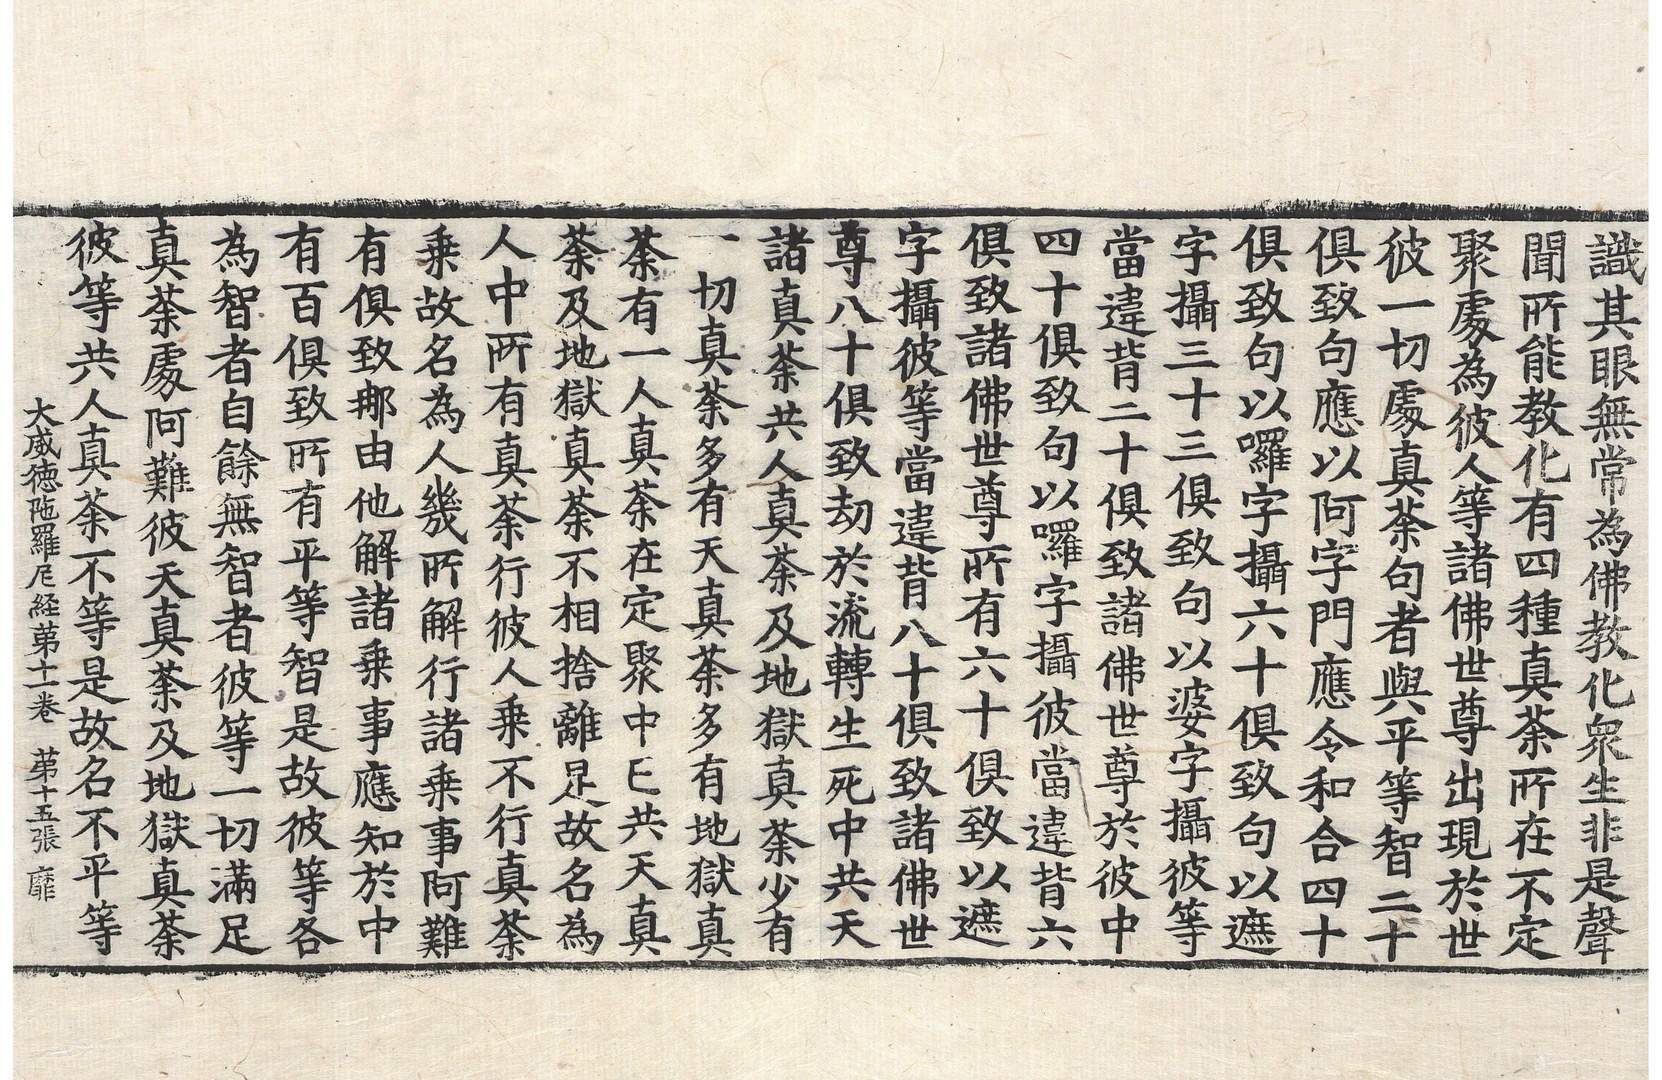 識其眼無常為佛教化衆生非是聲
聞所能教化有四種真荼所在不定
聚處為彼人等諸佛世尊出現於世
彼一切處真荼句者與平等智二十
俱致句應以阿字門應令和合四十
俱致句以囉字攝六十俱致句以遮
字攝三十三俱致句以婆字攝彼等
當違背二十俱致諸佛世尊於彼中
四十俱致句以囉字攝彼當違背六
俱致諸佛世尊所有六十俱致以遮
字攝彼等當違背八十俱致諸佛世
尊八十俱致劫於流轉生死中共天
諸真荼共人真荼及地獄真荼少有
一切真荼多有天真荼多有地獄真
荼有一人真荼在定聚中已共天真
荼及地獄真荼不相捨離是故名為
人中所有真荼行彼人乘不行真荼
乘故名為人幾所解行諸乘事阿難
有俱致那由他解諸乘事應知於中
有百俱致所有平等智是故彼等各
為智者自餘無智者彼等一切滿足
真荼處阿難彼天真荼及地獄真荼
彼等共人真荼不等是故名不平等
大威德陁羅尼経苐十一卷 苐十五張 靡